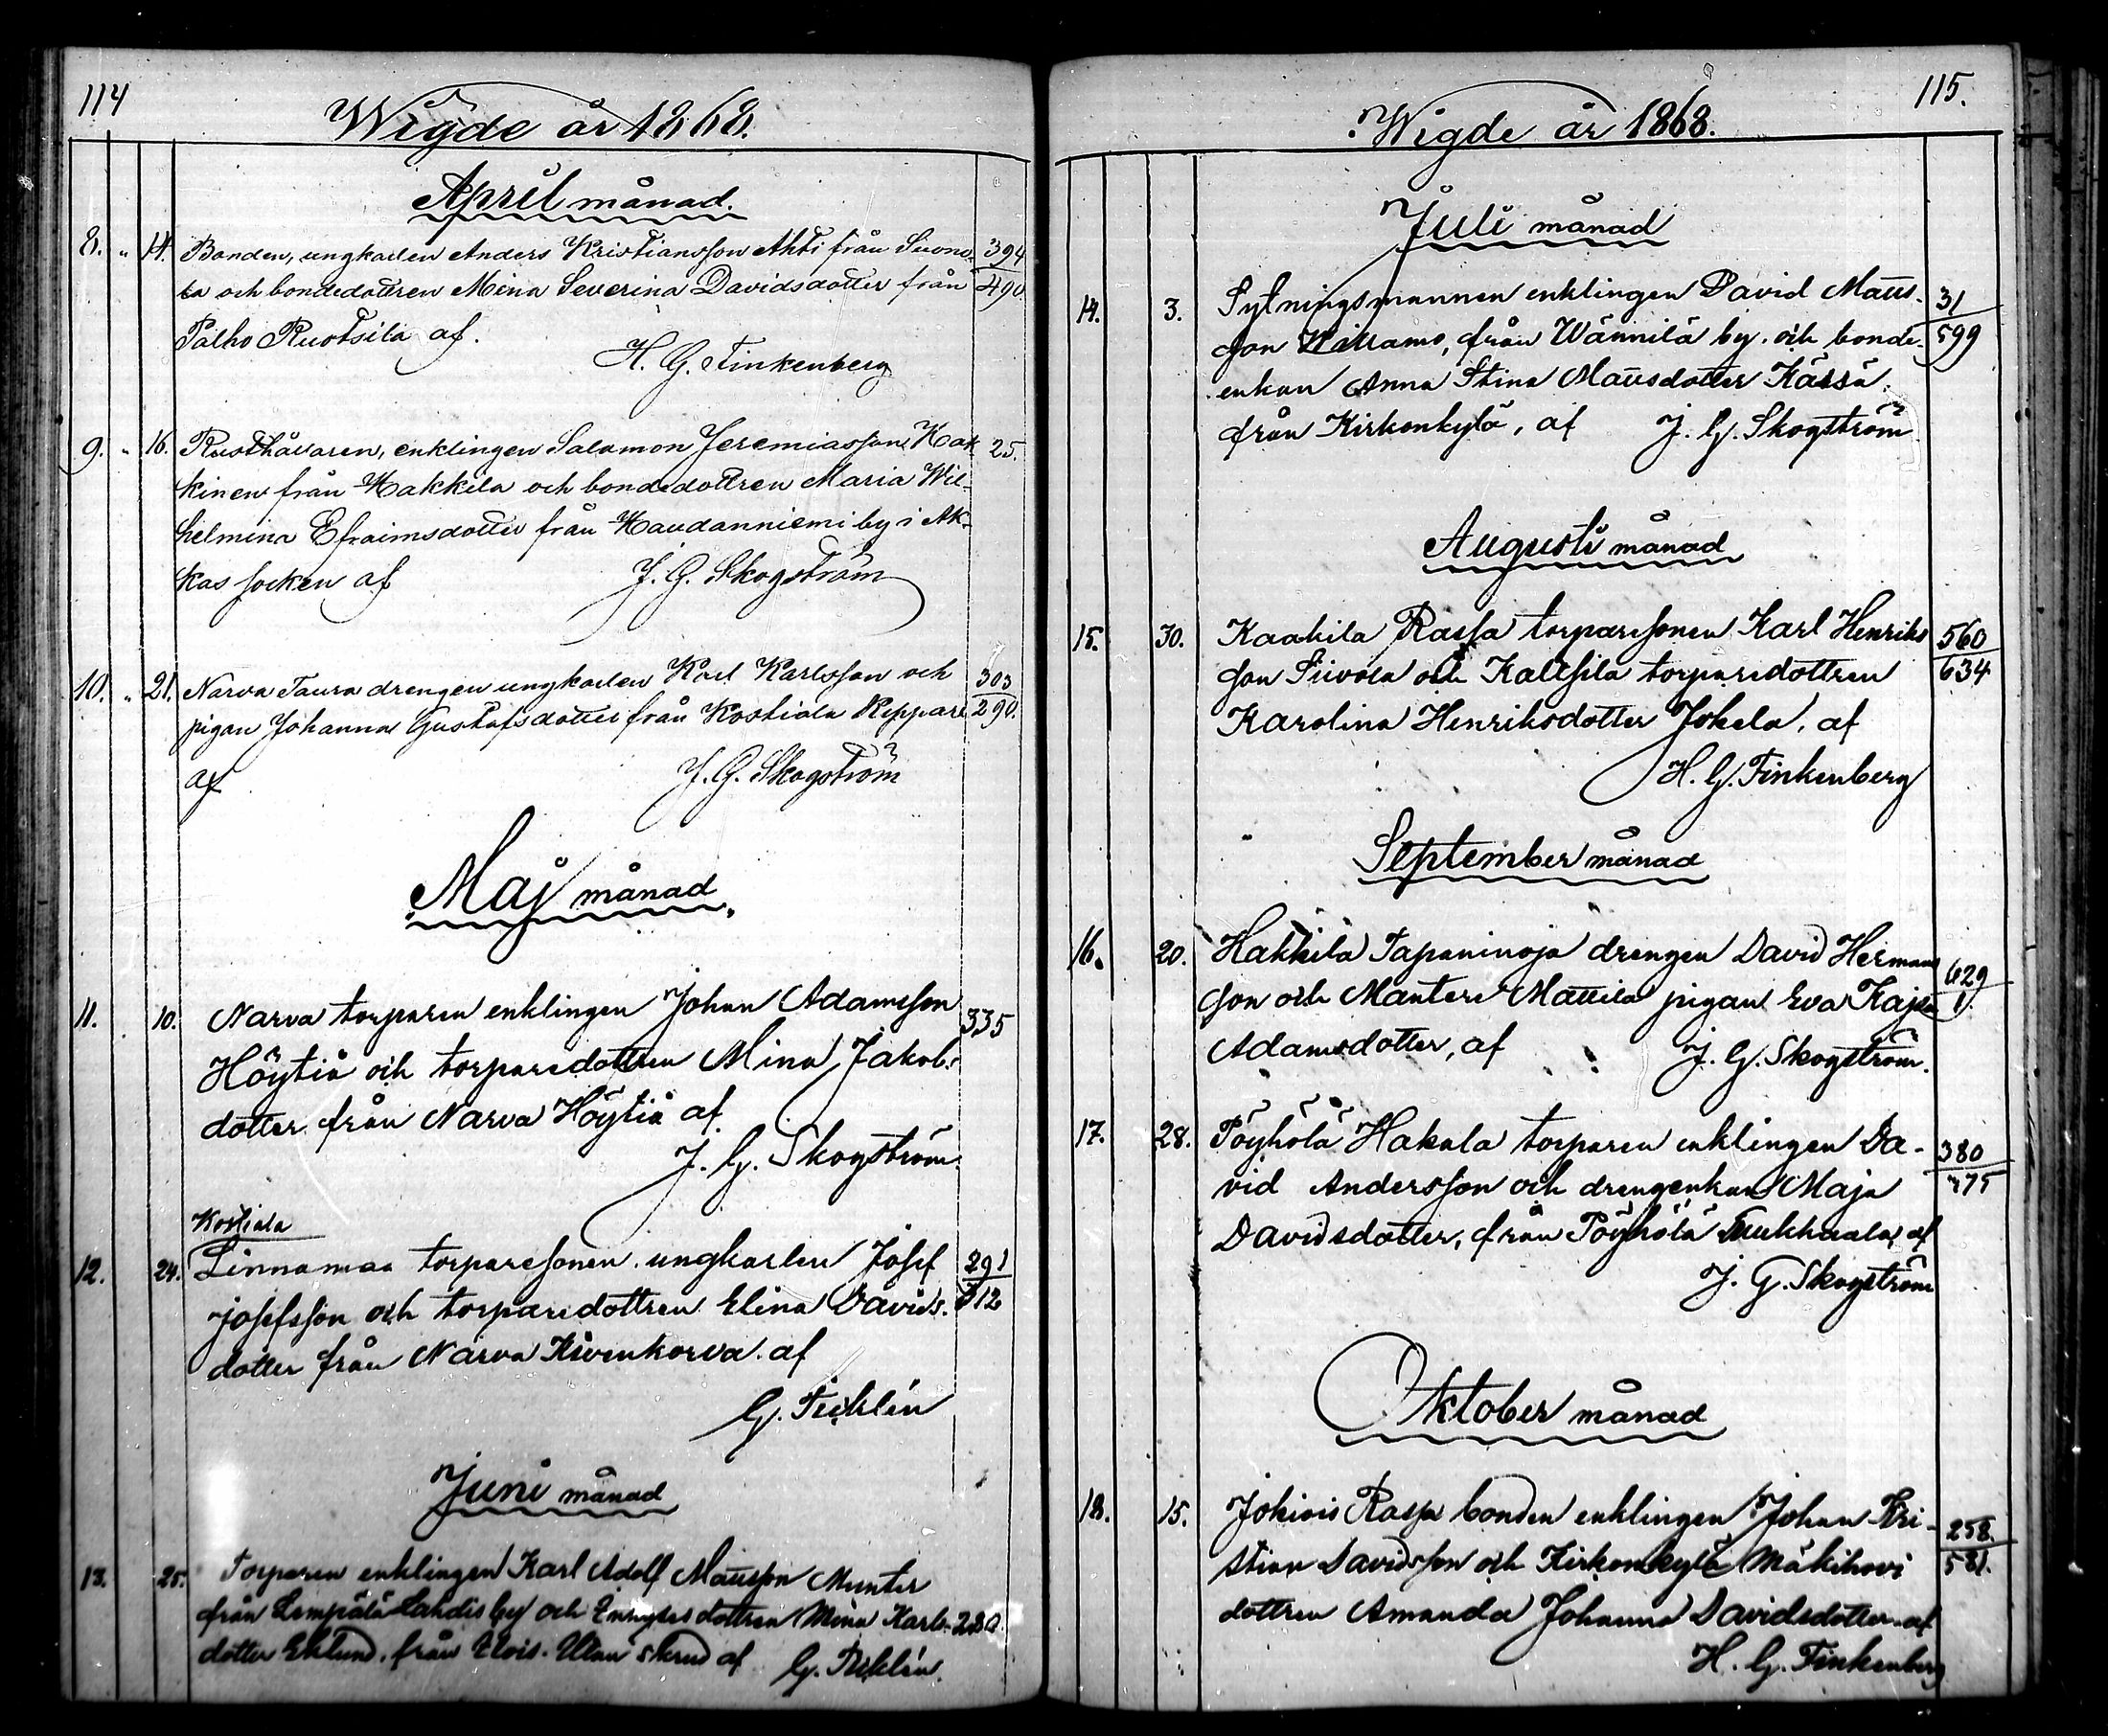 114
Wigde år 1868.
April månad.
8. " 14. Bonden, ungkarlen Anders Kristiansson Ahti från Suono- 394
la och bondedottren Mina Severina Davidsdotter från 490.
Palho Ruotsila af.
H. G. Finkenberg
9. " 16. Rusthållaren, enklingen Salomon Jeremiasson Hak- 25.
kinen från Hakkila och bondedottren Maria Wil-
helmina Efraimsdotter från Haudanniemi by i Ak-
kas socken af
J. G. Skogström
10. " 21. Narva Taura drengen ungkarlen Karl Karlsson och 303
pigan Johanna Gustafsdotter från Kostiala Reppari 290.
af
J. G. Skogström
Maj månad
11. 10. Narva torparen enklingen Johan Adamsson 335
Höytiä och torparedottren Mina Jakobs
dotter från Narva Höytiä af
J. G. Skogström.
Kostiala
12. 24. Linnamaa torparesonen ungkarlen Josef 291
Josefsson och torparedottren Elina Davids. 312
dotter från Narva Kivenkorva af
G. Ticklén
Juni månad
13. 25. Torparen enklingen Karl Adolf Mattsson Munter
från Lempälä Lahdis by och Inhyses dottren Mina Karls- 280.
dotter Eklund, från Utan skrud af G. Ticklén.
115.
Wigde år 1868.
Juli månad
14. 3. Sytningsmannen enklingen David Matts- 31
son från Wännilä by. och bonde- 599
enkan Anna Stina Mattsdotter Kässä.
från Kirkonkylä, af J. G. Skogström
Augusti månad
15. 30. Kaakila Rassa torparesonen Karl Henriks 560
son Siivola och Kaltsila torparedottren 634
Karolina Henriksdotter Jokela, af
H. G. Finkenberg
September månad
16. 20. Hakkila Tapaninoja drengen David Hermans 629
son och Mantere Mattila pigan Eva Kajsa 1.
Adamsdotter, af J. G. Skogström.
17. 28. Pöyhölä Hakala torparen enklingen Da- 380
vid Andersson och drengenkan Maja 375
Davidsdotter, från Pöyhölä af
J. G. Skogström
Oktober månad
18. 15. Jokiois Rassa bonden enklingen Johan Kri- 258.
stian Davidsson och Kirkonkylä Mäkihovi 581.
dottren Amanda Johanna Davidsdotter af
H. G. Finkenberg